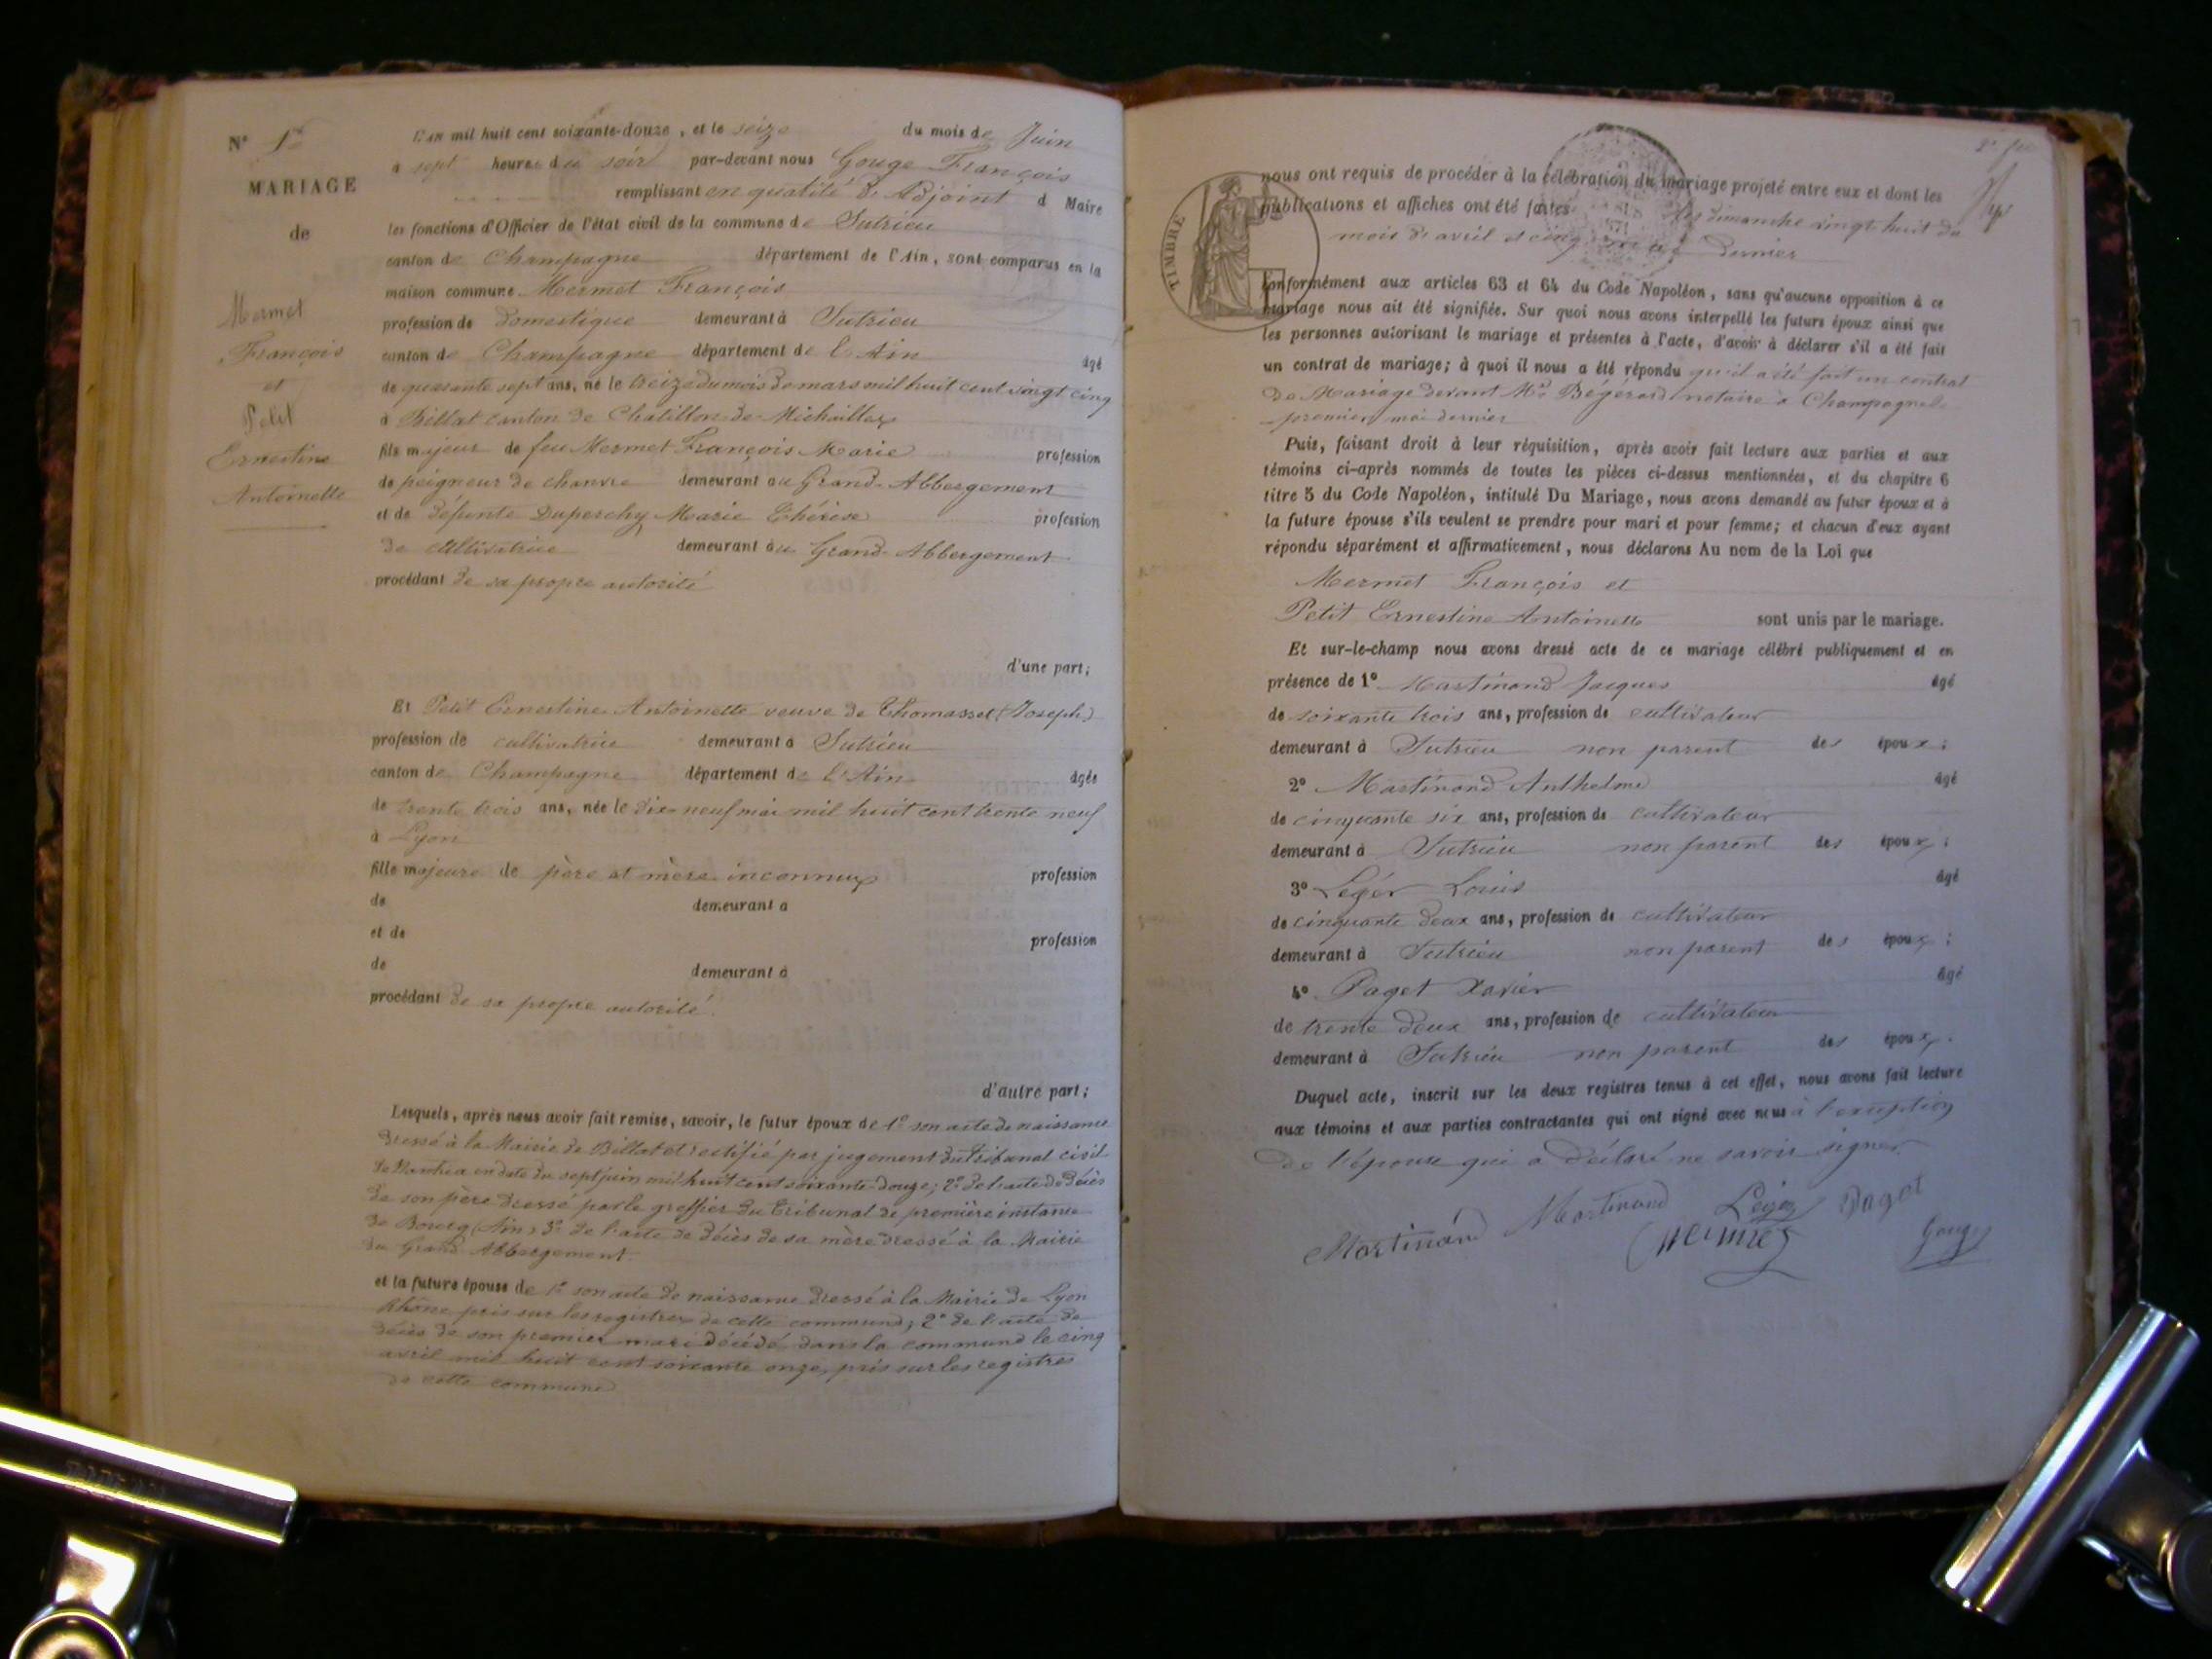 N° 1er
MARIAGE
de
Mermet
François
et
Petit
Ernestine
Antoinette
L'an mil huit cent soixante-douze, et le seize du mois de Juin
à sept heures du soir par-devant nous Gouge François
remplissant en qualité d'Adjoint d Maire
les fonctions d'Officier de l'état civil de la commune de Sutrieu
canton de Champagne département de l'Ain, sont comparus en la
maison commune Mermet François
profession de domestique demeurant à Sutrieu
canton de Champagne département de l'Ain âgé
de quarante sept ans, né le treize du mois de mars mil huit cent vingt cinq
à Billat canton de Chatillon-de-Michaille
fils majeur de feu Mermet François Marie profession
de peigneur de chanvre demeurant au Grand-Abbergement
et de défunte Duperchy Marie Thérèse profession
de cultivatrice demeurant au Grand-Abbergement
procédant de sa propre autorité
d'une part;
Et Petit Ernestine Antoinette veuve de Thomasset (Joseph)
profession de cultivatrice demeurant à Sutrieu
canton de Champagne département de l'Ain âgée
de trente trois ans, née le dix-neuf mai mil huit cent trente neuf
à Lyon
fille majeure de père et mère inconnus profession
de demeurant a
et de profession
de demeurant à
procédant de sa propre autorité.
d'autre part;
Lesquels, après nous avoir fait remise, savoir, le futur époux de 1° son acte de naissance
dressé à la Mairie de Billat et rectifié par jugement du Tribunal civil
de Nantua en date du sept juin mil huit cent soixante-douze; 2° de l'acte de décès
de son père dressé par le greffier du Tribunal de première instance
de Bourg (Ain) 3° de l'acte de décès de sa mère dressé à la Mairie
du Grand Abbergement.
et la future épouse de 1° son acte de naissance dressé à la Mairie de Lyon
Rhône pris sur les registres de cette commune; 2° de l'acte de
décès de son premier mari décédé dans la commune le cinq
avril mil huit cent soixante onze, pris sur les registres
de cette commune
TIMBRE
nous ont requis de procéder à la célébration du mariage projeté entre eux et dont les
publications et affiches ont été faites les dimanche vingt huit du
mois d'avril et cinq mai dernier
Conformément aux articles 63 et 64 du Code Napoléon, sans qu'aucune opposition à ce
mariage nous ait été signifiée. Sur quoi nous avons interpellé les futurs époux ainsi que
les personnes autorisant le mariage et présentes à l'acte, d'avoir à déclarer s'il a été fait
un contrat de mariage; à quoi il nous a été répondu qu'il a été fait un contrat
de Mariage devant Me Bégérard notaire à Champagne le
premier mai dernier
Puis, faisant droit à leur réquisition, après avoir fait lecture aux parties et aux
témoins ci-après nommés de toutes les pièces ci-dessus mentionnées, et du chapitre 6
titre 5 du Code Napoléon, intitulé Du Mariage, nous avons demandé au futur époux et à
la future épouse s'ils veulent se prendre pour mari et pour femme; et chacun d'eux ayant
répondu séparément et affirmativement, nous déclarons Au nom de la Loi que
Mermet François et
Petit Ernestine Antoinette sont unis par le mariage.
Et sur-le-champ nous avons dressé acte de ce mariage célébré publiquement et en
présence de 1° Martinand Jacques âgé
de soixante trois ans, profession de cultivateur
demeurant à Sutrieu non parent des époux;
2° Martinand Anthelme âgé
de cinquante six ans, profession de cultivateur
demeurant à Sutrieu non parent des époux;
3° Léger Louis âgé
de cinquante deux ans, profession de cultivateur
demeurant à Sutrieu non parent des époux;
4° Paget Xavier âgé
de trente deux ans, profession de cultivateur
demeurant à Sutrieu non parent des époux.
Duquel acte, inscrit sur les deux registres tenus à cet effet, nous avons fait lecture
aux témoins et aux parties contractantes qui ont signé avec nous à l'exception
de l'épouse qui a déclaré ne savoir signer
Martinand Martinand Léger Paget
Mermet Gouge